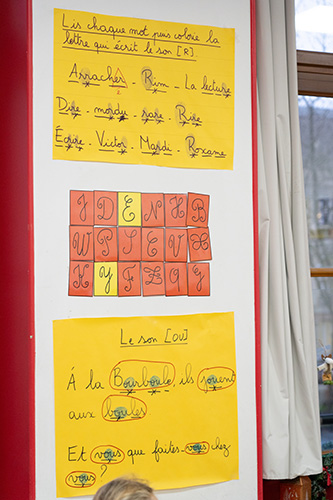 Lis chaque mot puis colorie la
lettre qui écrit le son [R]
Arracher Rim - La lecture
Dire - mordu - rare - Rire
Écrire - Victor - Mardi - Roxane
J D E N H B
W P S C V X
K Y F Z O G
Le son [OU]
À la Bourboule, ils jouent
aux boules
Et vous que faites-vous chez
vous ?